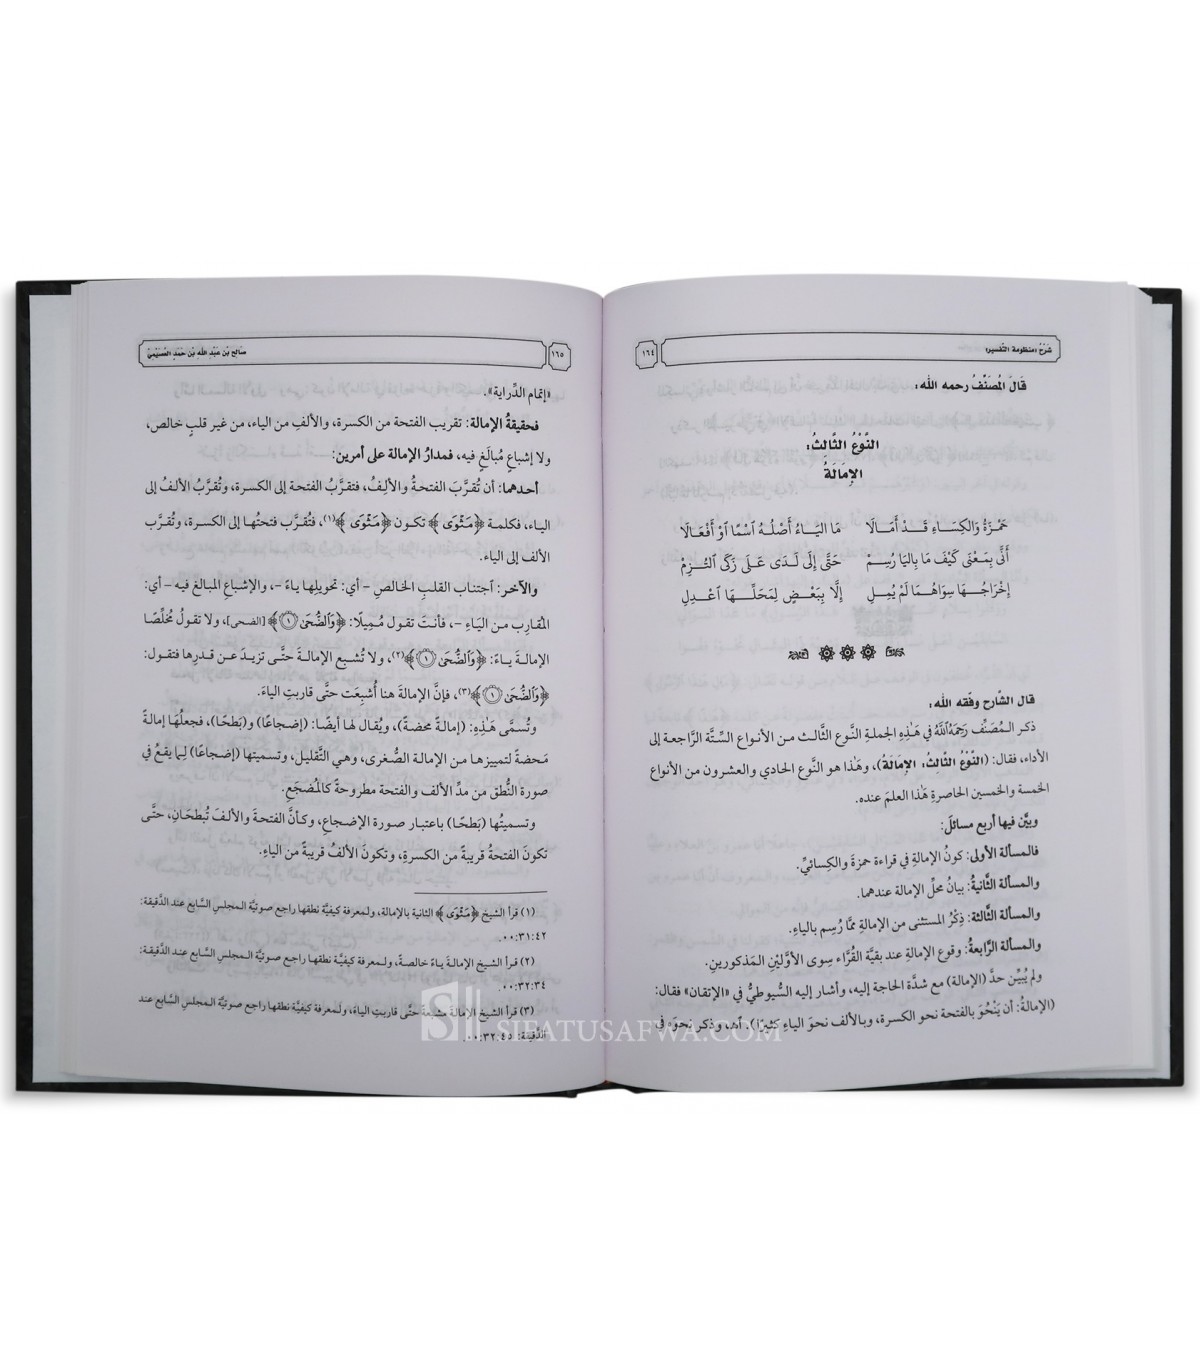 شَرْحُ «منظومة التَّفسير»
١٦٤
قَالَ المُصَنِّفُ رحمه الله:
النَّوْعُ الثَّالِثُ:
الإِمَالَةُ
حَمْزَةُ وَالْكِسَاءِ قَدْ أَمَالَا مَا الْيَاءُ أَصْلُهُ اسْمًا اوْ أَفْعَالَا
أَنَّى بِمَعْنَى كَيْفَ مَا بِاليَا رُسِمْ حَتَّى إِلَى لَدَى عَلَى زَكَى الْتُزِمْ
إِخْرَاجُهَا سِوَاهُمَا لَمْ يُمِلِ إِلَّا بِبَعْضٍ لِمَحَلِّهَا اعْدِلِ
قال الشَّارح وفقه الله:
ذكر المُصَنِّف رَحِمَهُ اللَّهُ في هَذِهِ الجملةِ النَّوع الثَّالث من الأنواع السِّتَّة الرَّاجعة إلى
الأداء، فقال: (النَّوْعُ الثَّالِثُ: الإِمَالَةُ)، وهَذا هو النَّوع الحادي والعشرون من الأنواع
الخمسة والخمسين الحاصرةِ هَذا العلمَ عنده.
وبيَّن فيها أربع مسائلَ:
فالمسألة الأولى: كونُ الإمالةِ في قراءة حمزةَ والكِسائيِّ.
والمسألة الثَّانية: بيانُ محلِّ الإمالة عندهما.
والمسألة الثَّالثة: ذِكْرُ المستثنى من الإمالة ممَّا رُسِم بالياءِ.
والمسألة الرَّابعة: وقوع الإمالةِ عند بقيَّة القُرَّاء سِوى الأوَّلَيْنِ المَذكورينِ.
ولم يُبيِّن حدَّ (الإمالة) مع شدَّة الحاجة إليه، وأشار إليه السُّيوطيُّ في «الإتقان» فقال:
(الإمالةُ: أن يَنْحُوَ بالفتحة نحو الكسرة، وبالألف نحوَ الياءِ كثيرًا). اهـ، وذكر نحوَه في
١٦٥
صَالِح بْن عَبْد اللَّه بْن حَمَد العُصَيْمِيّ
«إتمام الدِّراية».
فحقيقةُ الإمالة: تقريب الفتحة من الكسرة، والألفِ من الياء، من غير قلبٍ خالص،
ولا إشباعٍ مُبالَغٍ فيه، فمدارُ الإمالة على أمرين:
أحدهما: أن تُقرَّبَ الفتحةُ والألِفُ، فتقرَّبُ الفتحة إلى الكسرة، وتُقرَّبُ الألفُ إلى
الياء، فكلمة ﴿مَثْوَى﴾ تكون ﴿مَثْوَى﴾(١)، فتُقرَّب فتحتُها إلى الكسرة، وتُقرَّب
الألف إلى الياء.
والآخر: اجتناب القلبِ الخالصِ – أي: تحويلِها ياءً –، والإشباعِ المبالغ فيه – أي:
المُقارِب من الياءِ –، فأنتَ تقول مُمِيلًا: ﴿وَالضُّحَىٰ ۝١﴾ [الضحى]، ولا تقولُ مُخلِّصًا
الإمالةَ ياءً: ﴿وَالضُّحَىٰ ۝١﴾(٢)، ولا تُشبع الإمالةَ حتَّى تزيدَ عن قدرِها فتقول:
﴿وَالضُّحَىٰ ۝١﴾(٣)، فإنَّ الإمالة هنا أُشبِعَت حتَّى قاربتِ الياءَ.
وتُسمَّى هَذِهِ: (إمالةً محضةً)، ويُقال لها أيضًا: (إضجاعًا) و(بَطحًا)، فجعلُها إمالةً
مَحضةً لتمييزها من الإمالة الصُّغرى، وهي التَّقليل، وتسميتها (إضجاعًا) لِما يقعُ في
صورة النُّطق من مدِّ الألف والفتحة مطروحةً كالمُضجَعِ.
وتسميتُها (بَطحًا) باعتبار صورة الإضجاع، وكأنَّ الفتحةَ والألفَ تُبطحَان، حتَّى
تكونَ الفتحةُ قريبةً من الكسرةِ، وتكونَ الألفُ قريبةً من الياءِ.
(١) قرأ الشيخ ﴿مَثْوَى﴾ الثانية بالإمالة، ولمعرفة كيفيَّة نطقها راجع صوتيَّة المجلسِ السَّابع عند الدَّقيقة:
٠٠:٣١:٤٢.
(٢) قرأ الشيخ الإمالةَ ياءً خالصةً، ولمعرفة كيفيَّة نطقها راجع صوتيَّة المجلسِ السَّابع عند الدَّقيقة:
٠٠:٣٢:٣٤.
(٣) قرأ الشيخ الإمالة مشبعةً حتَّى قاربتِ الياءَ، ولمعرفة كيفيَّة نطقها راجع صوتيَّة المجلس السَّابع عند
الدَّقيقة: ٠٠:٣٢:٤٥.
SIFATUSAFWA.COM